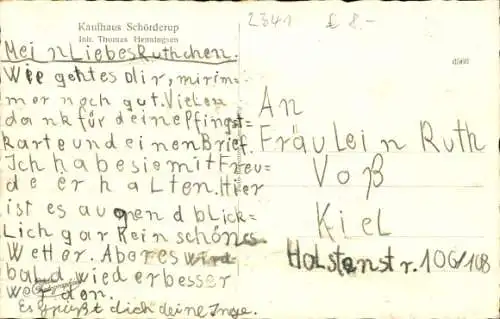 Kaufhaus Schörderup
Inh. Thomas Henningsen
2341 £ 8.-
Mein Liebes Ruthchen.
Wie geht es dir, mir im=
mer noch gut. Vielen
dank für deine Pfingst=
karte und einen Brief.
Ich habe sie mit Freu=
de erhalten. Hier
ist es augend blick=
lich gar kein schönes
Wetter. Aber es wird
bald wieder besser
werden.
Es grüßt dich deine Inge.
An
Fräulein Ruth
Voß
Kiel
Holstenstr. 106/108